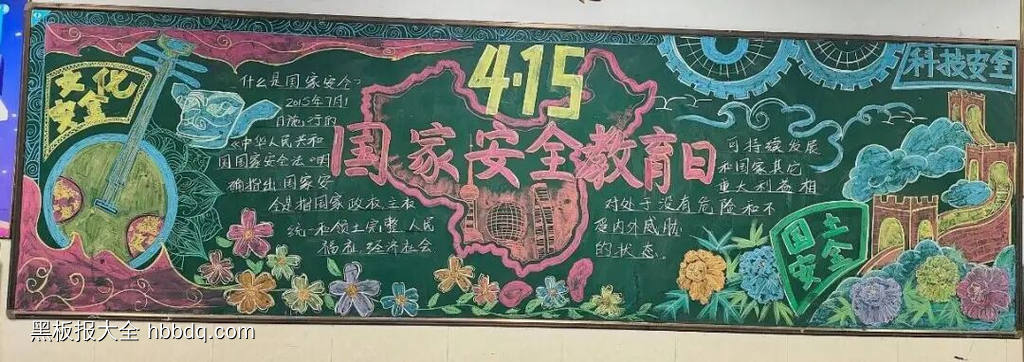 文化
安全
什么是国家安全?
2015年7月1
日施行的
《中华人民共和
国国家安全法》明
确指出国家安
全是指国家政权主权
统一和领土完整人民
福祉经济社会
4·15
国家安全教育日
可持续发展
和国家其它
重大利益相
对处于没有危险和不
受内外威胁
的状态。
科技安全
国土
安全
黑板报大全 hbbdq.com